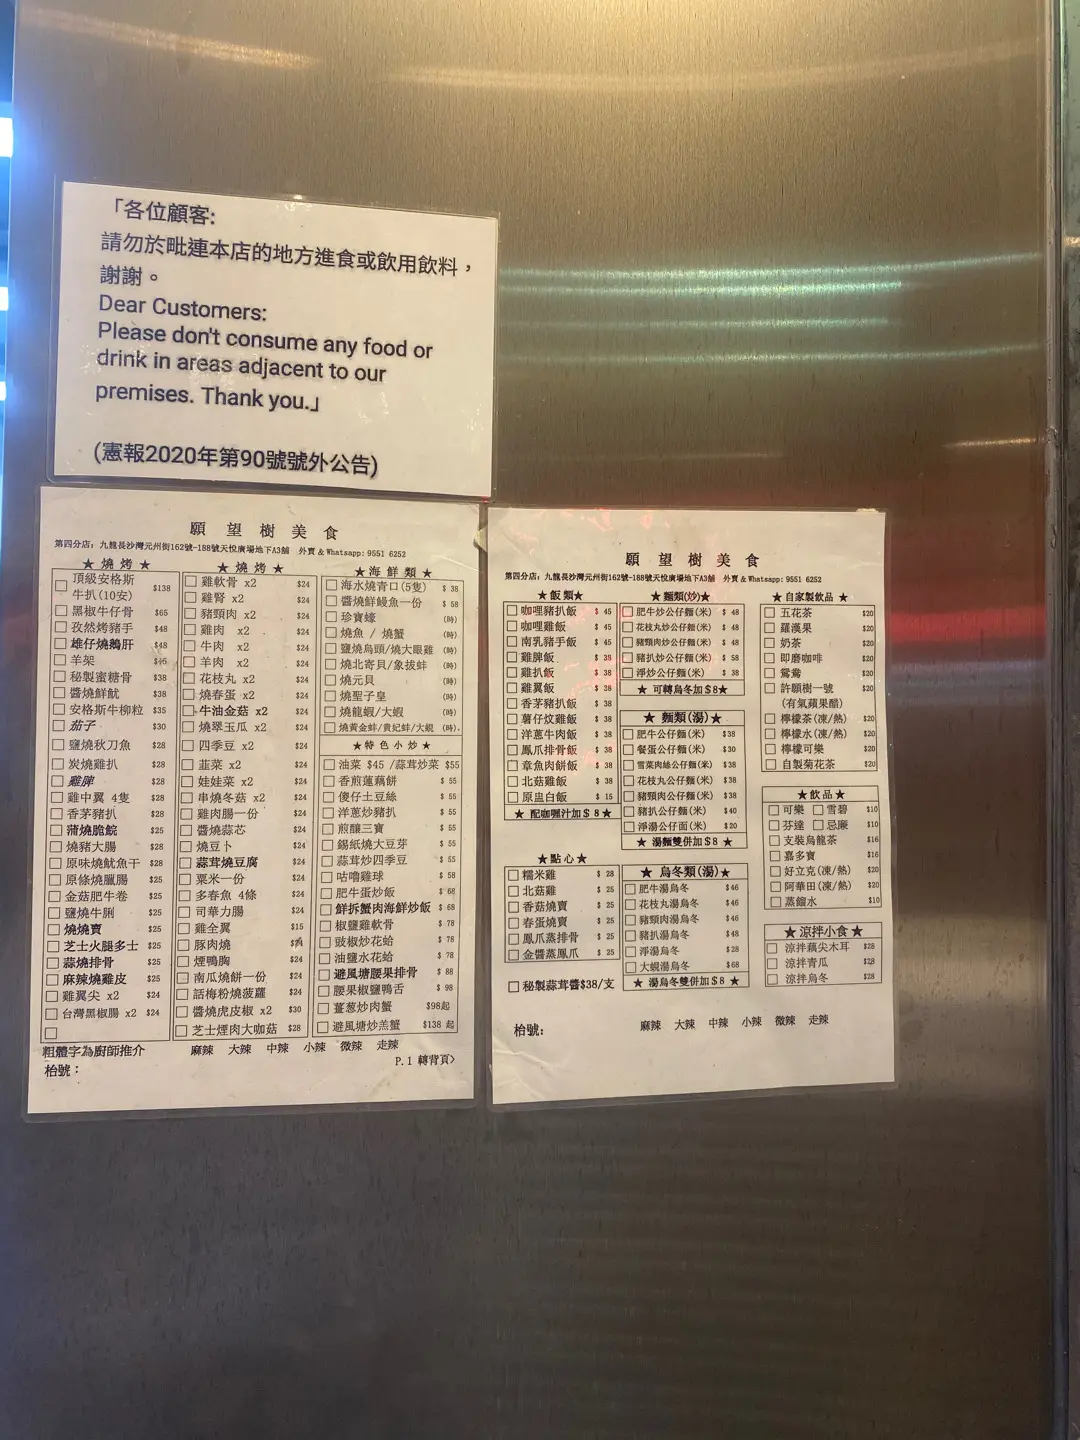 「各位顧客:
請勿於毗連本店的地方進食或飲用飲料，
謝謝。
Dear Customers:
Please don't consume any food or
drink in areas adjacent to our
premises. Thank you.」
(憲報2020年第90號號外公告)
願望樹美食
第四分店: 九龍長沙灣元州街162號-188號天悅廣場地下A3舖 外賣 & Whatsapp: 9551 6252
★ 燒烤 ★
頂級安格斯
牛扒(10安) $138
黑椒牛仔骨 $65
孜然烤豬手 $48
雄仔燒鵝肝 $48
羊架 $46
秘製蜜糖骨 $38
醬燒鮮魷 $38
安格斯牛柳粒 $35
茄子 $30
鹽燒秋刀魚 $28
炭燒雞扒 $28
雞脾 $28
雞中翼 4隻 $28
香茅豬扒 $28
蒲燒脆鯇 $25
燒豬大腸 $28
原味燒魷魚干 $28
原條燒臘腸 $25
金菇肥牛卷 $25
鹽燒牛脷 $25
燒燒賣 $25
芝士火腿多士 $25
蒜燒排骨 $25
麻辣燒雞皮 $25
雞翼尖 x2 $24
台灣黑椒腸 x2 $24
★ 燒烤 ★
雞軟骨 x2 $24
雞腎 x2 $24
豬頸肉 x2 $24
雞肉 x2 $24
牛肉 x2 $24
羊肉 x2 $24
花枝丸 x2 $24
燒春蛋 x2 $24
牛油金菇 x2 $24
燒翠玉瓜 x2 $24
四季豆 x2 $24
韮菜 x2 $24
娃娃菜 x2 $24
串燒冬菇 x2 $24
雞肉腸一份 $24
醬燒蒜芯 $24
燒豆卜 $24
蒜茸燒豆腐 $24
粟米一份 $24
多春魚 4條 $24
司華力腸 $24
雞全翼 $15
豚肉燒
煙鴨胸 $24
南瓜燒餅一份 $24
話梅粉燒菠蘿 $24
醬燒虎皮椒 x2 $30
芝士煙肉大咖菇 $28
★ 海鮮類 ★
海水燒青口(5隻) $ 38
醬燒鮮鰻魚一份 $ 58
珍寶蠔 (時)
燒魚 / 燒蟹 (時)
鹽燒烏頭/燒大眼雞 (時)
燒北寄貝/象拔蚌 (時)
燒元貝 (時)
燒聖子皇 (時)
燒龍蝦/大蝦 (時)
燒黃金蚌/貴妃蚌/大蜆 (時)
★ 特色小炒 ★
油菜 $45 /蒜茸炒菜 $55
香煎蓮藕餅 $ 55
儍仔土豆絲 $ 55
洋蔥炒豬扒 $ 55
煎釀三寶 $ 55
錫紙燒大豆芽 $ 55
蒜茸炒四季豆 $ 55
咕嚕雞球 $ 58
肥牛蛋炒飯 $ 68
鮮拆蟹肉海鮮炒飯 $ 68
椒鹽雞軟骨 $ 78
豉椒炒花蛤 $ 78
油鹽水花蛤 $ 78
避風塘腰果排骨 $ 88
腰果椒鹽鴨舌 $ 98
薑蔥炒肉蟹 $98起
避風塘炒羔蟹 $138 起
粗體字為廚師推介
麻辣 大辣 中辣 小辣 微辣 走辣
枱號：
P.1 轉背頁>
願望樹美食
第四分店: 九龍長沙灣元州街162號-188號天悅廣場地下A3舖 外賣 & Whatsapp: 9551 6252
★ 飯類 ★
咖哩豬扒飯 $ 45
咖哩雞飯 $ 45
南乳豬手飯 $ 45
雞脾飯 $ 38
雞扒飯 $ 38
雞翼飯 $ 38
香茅豬扒飯 $ 38
薯仔炆雞飯 $ 38
洋蔥牛肉飯 $ 38
鳳爪排骨飯 $ 38
章魚肉餅飯 $ 38
北菇雞飯 $ 38
原盅白飯 $ 15
★ 配咖喱汁加$ 8★
★點心★
糯米雞 $ 28
北菇雞 $ 25
香菇燒賣 $ 25
春蛋燒賣 $ 25
鳳爪蒸排骨 $ 25
金醬蒸鳳爪 $ 25
秘製蒜茸醬$38/支
★ 麵類(炒)★
肥牛炒公仔麵(米) $ 48
花枝丸炒公仔麵(米) $ 48
豬頸肉炒公仔麵(米) $ 48
豬扒炒公仔麵(米) $ 58
淨炒公仔麵(米) $ 38
★ 可轉烏冬加$8★
★ 麵類(湯)★
肥牛公仔麵(米) $38
餐蛋公仔麵(米) $30
雪菜肉絲公仔麵(米) $38
花枝丸公仔麵(米) $38
豬頸肉公仔麵(米) $38
豬扒公仔麵(米) $40
淨湯公仔面(米) $20
★ 湯麵雙併加$8 ★
★ 烏冬類(湯)★
肥牛湯烏冬 $46
花枝丸湯烏冬 $46
豬頸肉湯烏冬 $46
豬扒湯烏冬 $48
淨湯烏冬 $28
大蜆湯烏冬 $68
★ 湯烏冬雙併加$8 ★
★ 自家製飲品 ★
五花茶 $20
羅漢果 $20
奶茶 $20
即磨咖啡 $20
鴛鴦 $20
許願樹一號 $20
(有氣蘋果醋)
檸檬茶(凍/熱) $20
檸檬水(凍/熱) $20
檸檬可樂 $20
自製菊花茶 $20
★ 飲品 ★
可樂 雪碧 $10
芬達 忌廉 $10
支裝烏龍茶 $16
嘉多寶 $16
好立克(凍/熱) $20
阿華田(凍/熱) $20
蒸餾水 $10
★ 涼拌小食 ★
涼拌藕尖木耳 $28
涼拌青瓜 $28
涼拌烏冬 $28
枱號:
麻辣 大辣 中辣 小辣 微辣 走辣